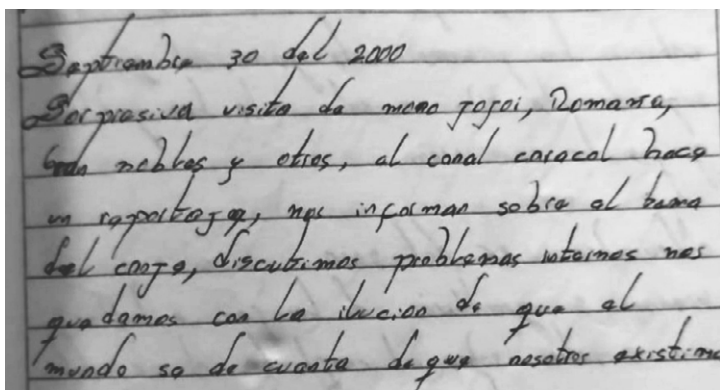 Septiembre 30 del 2000
Sorpresiva visita de mono jojoi, Romaña,
nobles y otros, el canal caracol hace
un reportaje, nos informan sobre el tema
del canje, discutimos problemas internos nos
quedamos con la ilucion de que el
mundo se de cuenta de que nosotros existimo